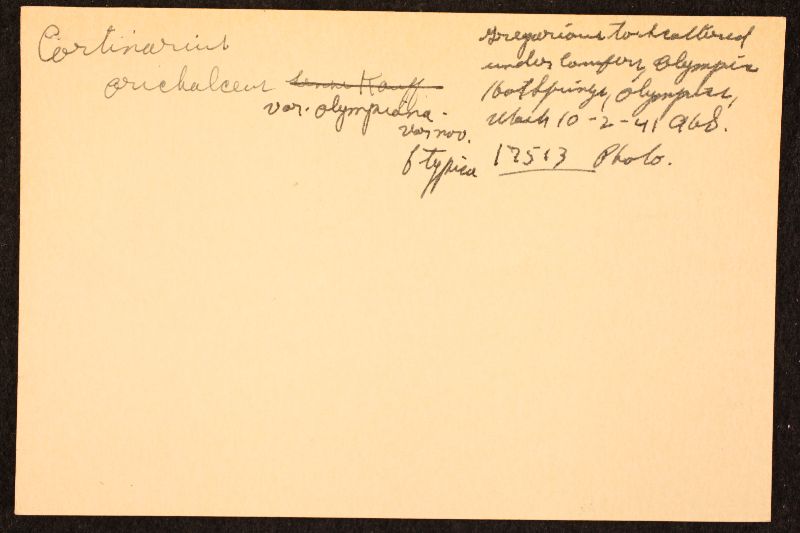 Cortinarius
orichalceus sensu Kauff
var. olympiana.
var nov.
f typica
Gregarious to scattered
under conifers, Olympic
Hot Springs, Olympics,
Wash 10-2-41 AHS.
17513 Photo.